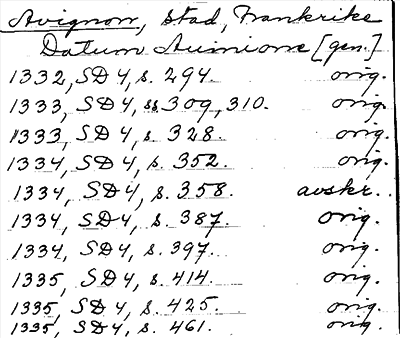 Avignon, stad, Frankrike
Datum Avinione [gen.]
1332, SD 4, s. 294. orig.
1333, SD 4, ss 309, 310. orig.
1333, SD 4, s. 328. orig.
1334, SD 4, s. 352. orig.
1334, SD 4, s. 358. avskr.
1334, SD 4, s. 387. orig.
1334, SD 4, s. 397. orig.
1335, SD 4, s. 414. orig.
1335, SD 4, s. 425. orig.
1335, SD 4, s. 461. orig.